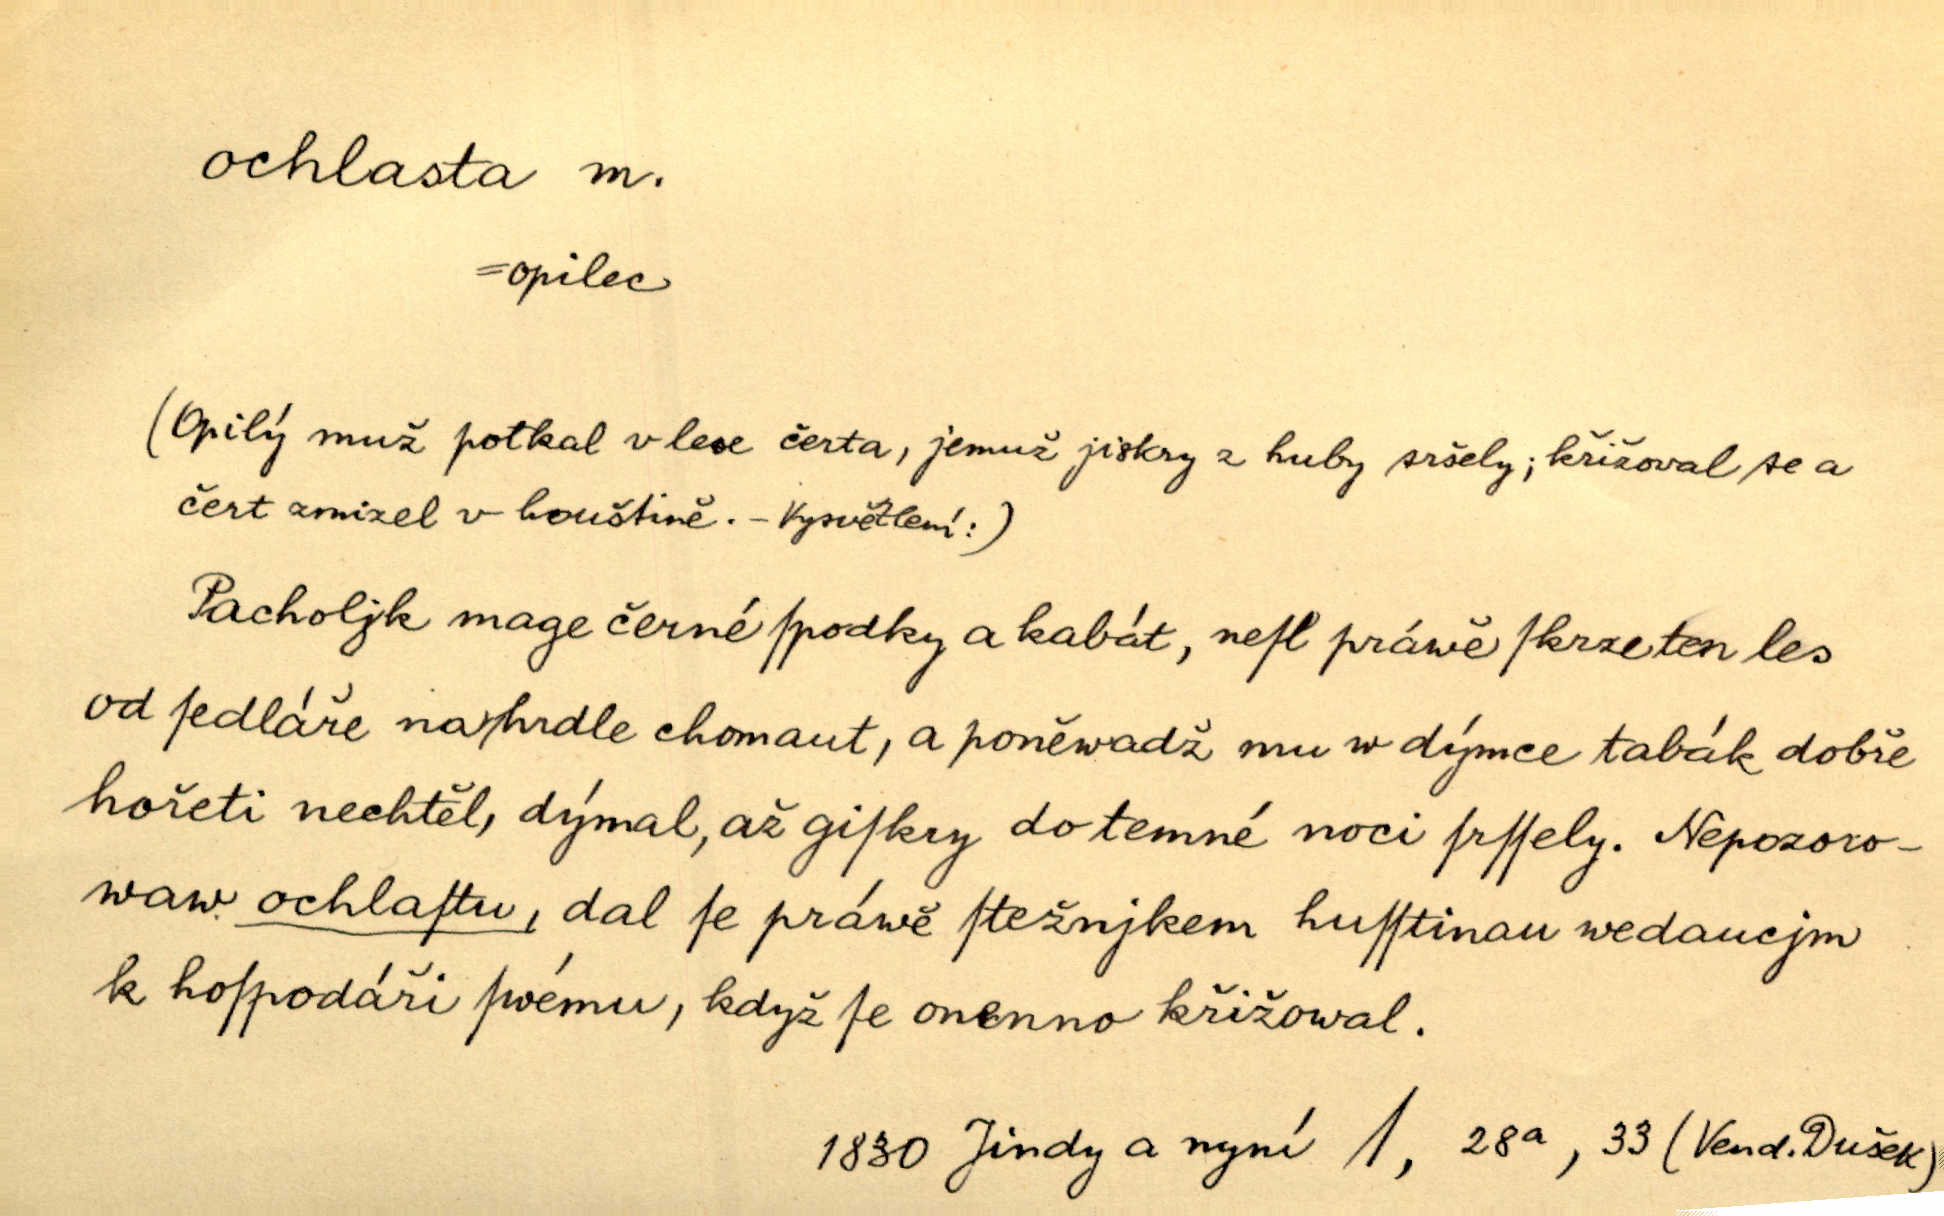 ochlasta m.
=opilec
(Opilý muž potkal v lese čerta, jemuž jiskry z huby sršely; křižoval se a
čert zmizel v houštině. – Vysvětlení:)
Pacholjk mage černé ſpodky a kabát, neſl práwě ſkrze ten les
od ſedláře na hrdle chomaut, a poněwadž mu w dýmce tabák dobře
hořeti nechtěl, dýmal, až giſkry do temné noci ſrſſely. Nepozoro-
waw ochlaſtu, dal ſe práwě ſtežnjkem huſſtinau wedaucjm
k hoſpodáři ſwému, když ſe onenno křižowal.
1830 Jindy a nyní 1, 28a, 33 (Vend. Dušek)